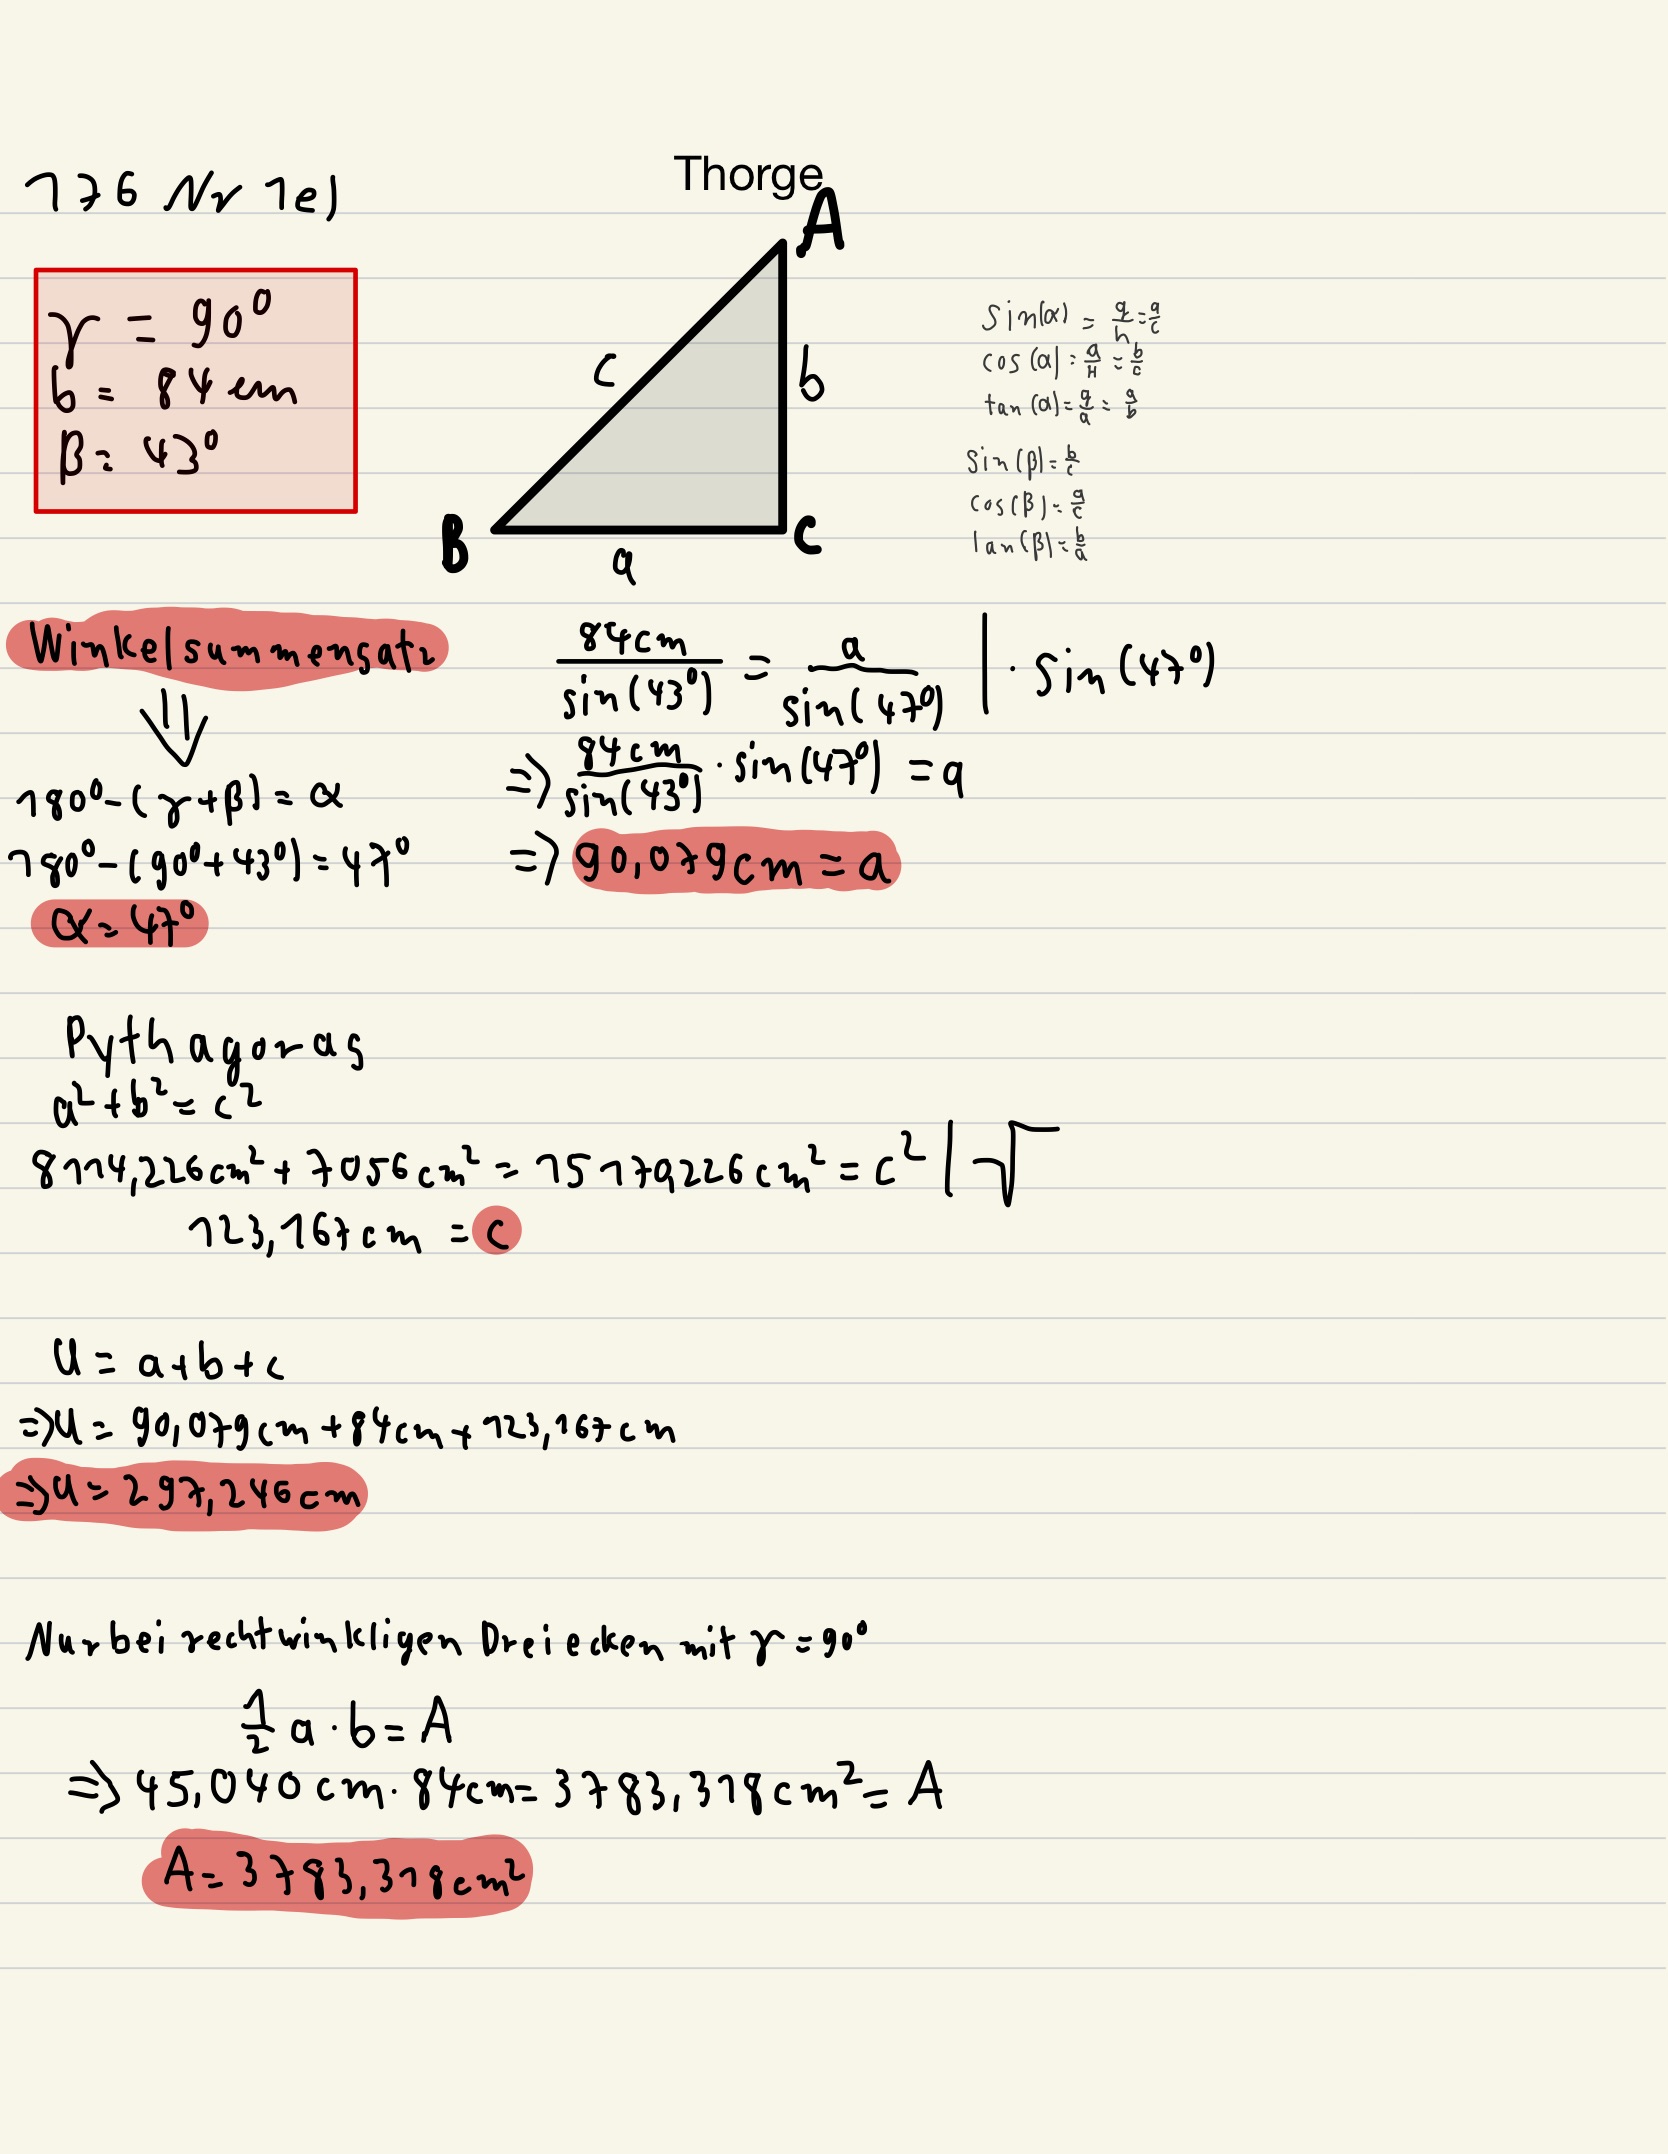 Thorge
176 Nr 1e)
γ = 90°
b = 84 cm
β = 43°
A
c
b
B
a
C
sin(α) = g/h = a/c
cos(α) = a/H = b/c
tan(α) = g/a = a/b
sin(β) = b/c
cos(β) = a/c
tan(β) = b/a
Winkelsummensatz
⇓
180° - (γ + β) = α
180° - (90° + 43°) = 47°
α = 47°
84cm/sin(43°) = a/sin(47°) | · sin(47°)
⇒ 84cm/sin(43°) · sin(47°) = a
⇒ 90,079cm = a
Pythagoras
a² + b² = c²
8114,226cm² + 7056cm² = 15170,226cm² = c² | √
123,167cm = c
U = a + b + c
⇒ U = 90,079cm + 84cm + 123,167cm
⇒ U = 297,246cm
Nur bei rechtwinkligen Dreiecken mit γ = 90°
1/2 a · b = A
⇒ 45,040cm · 84cm = 3783,318cm² = A
A = 3783,318cm²